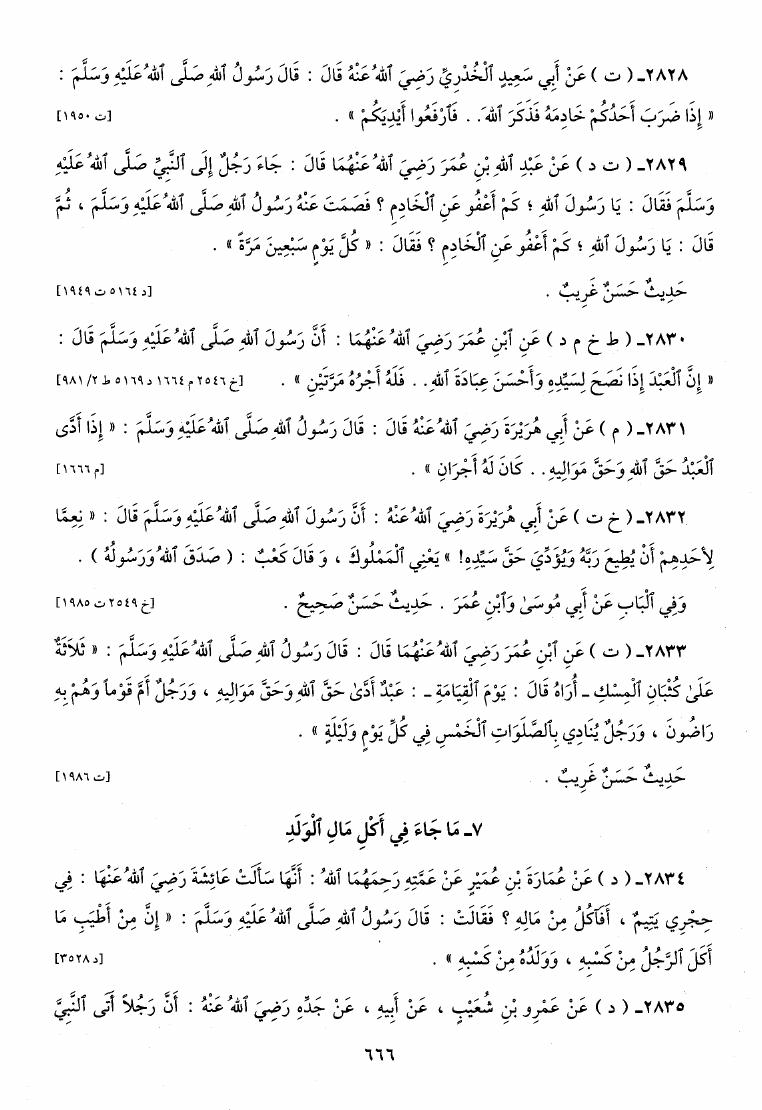 ٢٨٢٨ـ ( ت ) عَنْ أَبِي سَعِيدٍ ٱلْخُدْرِيِّ رَضِيَ ٱللهُ عَنْهُ قَالَ : قَالَ رَسُولُ ٱللهِ صَلَّى ٱللهُ عَلَيْهِ وَسَلَّمَ :
« إِذَا ضَرَبَ أَحَدُكُمْ خَادِمَهُ فَذَكَرَ ٱللهَ. . فَٱرْفَعُوا أَيْدِيَكُمْ » . [ت ١٩٥٠]
٢٨٢٩ـ ( ت د ) عَنْ عَبْدِ ٱللهِ بْنِ عُمَرَ رَضِيَ ٱللهُ عَنْهُمَا قَالَ : جَاءَ رَجُلٌ إِلَى ٱلنَّبِيِّ صَلَّى ٱللهُ عَلَيْهِ
وَسَلَّمَ فَقَالَ : يَا رَسُولَ ٱللهِ ؛ كَمْ أَعْفُو عَنِ ٱلْخَادِمِ ؟ فَصَمَتَ عَنْهُ رَسُولُ ٱللهِ صَلَّى ٱللهُ عَلَيْهِ وَسَلَّمَ ، ثُمَّ
قَالَ : يَا رَسُولَ ٱللهِ ؛ كَمْ أَعْفُو عَنِ ٱلْخَادِمِ ؟ فَقَالَ : « كُلَّ يَوْمٍ سَبْعِينَ مَرَّةً » .
حَدِيثٌ حَسَنٌ غَرِيبٌ . [د ٥١٦٤ ت ١٩٤٩]
٢٨٣٠ـ ( ط خ م د ) عَنِ ٱبْنِ عُمَرَ رَضِيَ ٱللهُ عَنْهُمَا : أَنَّ رَسُولَ ٱللهِ صَلَّى ٱللهُ عَلَيْهِ وَسَلَّمَ قَالَ :
« إِنَّ ٱلْعَبْدَ إِذَا نَصَحَ لِسَيِّدِهِ وَأَحْسَنَ عِبَادَةَ ٱللهِ. . فَلَهُ أَجْرُهُ مَرَّتَيْنِ » . [خ ٢٥٤٦ م ١٦٦٤ د ٥١٦٩ ط ٢/ ٩٨١]
٢٨٣١ـ ( م ) عَنْ أَبِي هُرَيْرَةَ رَضِيَ ٱللهُ عَنْهُ قَالَ : قَالَ رَسُولُ ٱللهِ صَلَّى ٱللهُ عَلَيْهِ وَسَلَّمَ : « إِذَا أَدَّى
ٱلْعَبْدُ حَقَّ ٱللهِ وَحَقَّ مَوَالِيهِ. . كَانَ لَهُ أَجْرَانِ » . [م ١٦٦٦]
٢٨٣٢ـ ( خ ت ) عَنْ أَبِي هُرَيْرَةَ رَضِيَ ٱللهُ عَنْهُ : أَنَّ رَسُولَ ٱللهِ صَلَّى ٱللهُ عَلَيْهِ وَسَلَّمَ قَالَ : « نِعِمَّا
لِأَحَدِهِمْ أَنْ يُطِيعَ رَبَّهُ وَيُؤَدِّيَ حَقَّ سَيِّدِهِ! » يَعْنِي ٱلْمَمْلُوكَ ، وَقَالَ كَعْبٌ : ( صَدَقَ ٱللهُ وَرَسُولُهُ ) .
وَفِي ٱلْبَابِ عَنْ أَبِي مُوسَىٰ وَٱبْنِ عُمَرَ . حَدِيثٌ حَسَنٌ صَحِيحٌ . [خ ٢٥٤٩ ت ١٩٨٥]
٢٨٣٣ـ ( ت ) عَنِ ٱبْنِ عُمَرَ رَضِيَ ٱللهُ عَنْهُمَا قَالَ : قَالَ رَسُولُ ٱللهِ صَلَّى ٱللهُ عَلَيْهِ وَسَلَّمَ : « ثَلَاثَةٌ
عَلَىٰ كُثْبَانِ ٱلْمِسْكِ ـ أُرَاهُ قَالَ : يَوْمَ ٱلْقِيَامَةِ ـ : عَبْدٌ أَدَّىٰ حَقَّ ٱللهِ وَحَقَّ مَوَالِيهِ ، وَرَجُلٌ أَمَّ قَوْماً وَهُمْ بِهِ
رَاضُونَ ، وَرَجُلٌ يُنَادِي بِٱلصَّلَوَاتِ ٱلْخَمْسِ فِي كُلِّ يَوْمٍ وَلَيْلَةٍ » .
حَدِيثٌ حَسَنٌ غَرِيبٌ . [ت ١٩٨٦]
٧ـ مَا جَاءَ فِي أَكْلِ مَالِ ٱلْوَلَدِ
٢٨٣٤ـ ( د ) عَنْ عُمَارَةَ بْنِ عُمَيْرٍ عَنْ عَمَّتِهِ رَحِمَهُمَا ٱللهُ : أَنَّهَا سَأَلَتْ عَائِشَةَ رَضِيَ ٱللهُ عَنْهَا : فِي
حِجْرِي يَتِيمٌ ، أَفَآكُلُ مِنْ مَالِهِ ؟ فَقَالَتْ : قَالَ رَسُولُ ٱللهِ صَلَّى ٱللهُ عَلَيْهِ وَسَلَّمَ : « إِنَّ مِنْ أَطْيَبِ مَا
أَكَلَ ٱلرَّجُلُ مِنْ كَسْبِهِ ، وَوَلَدُهُ مِنْ كَسْبِهِ » . [د ٣٥٢٨]
٢٨٣٥ـ ( د ) عَنْ عَمْرِو بْنِ شُعَيْبٍ ، عَنْ أَبِيهِ ، عَنْ جَدِّهِ رَضِيَ ٱللهُ عَنْهُ : أَنَّ رَجُلاً أَتَى ٱلنَّبِيَّ
٦٦٦